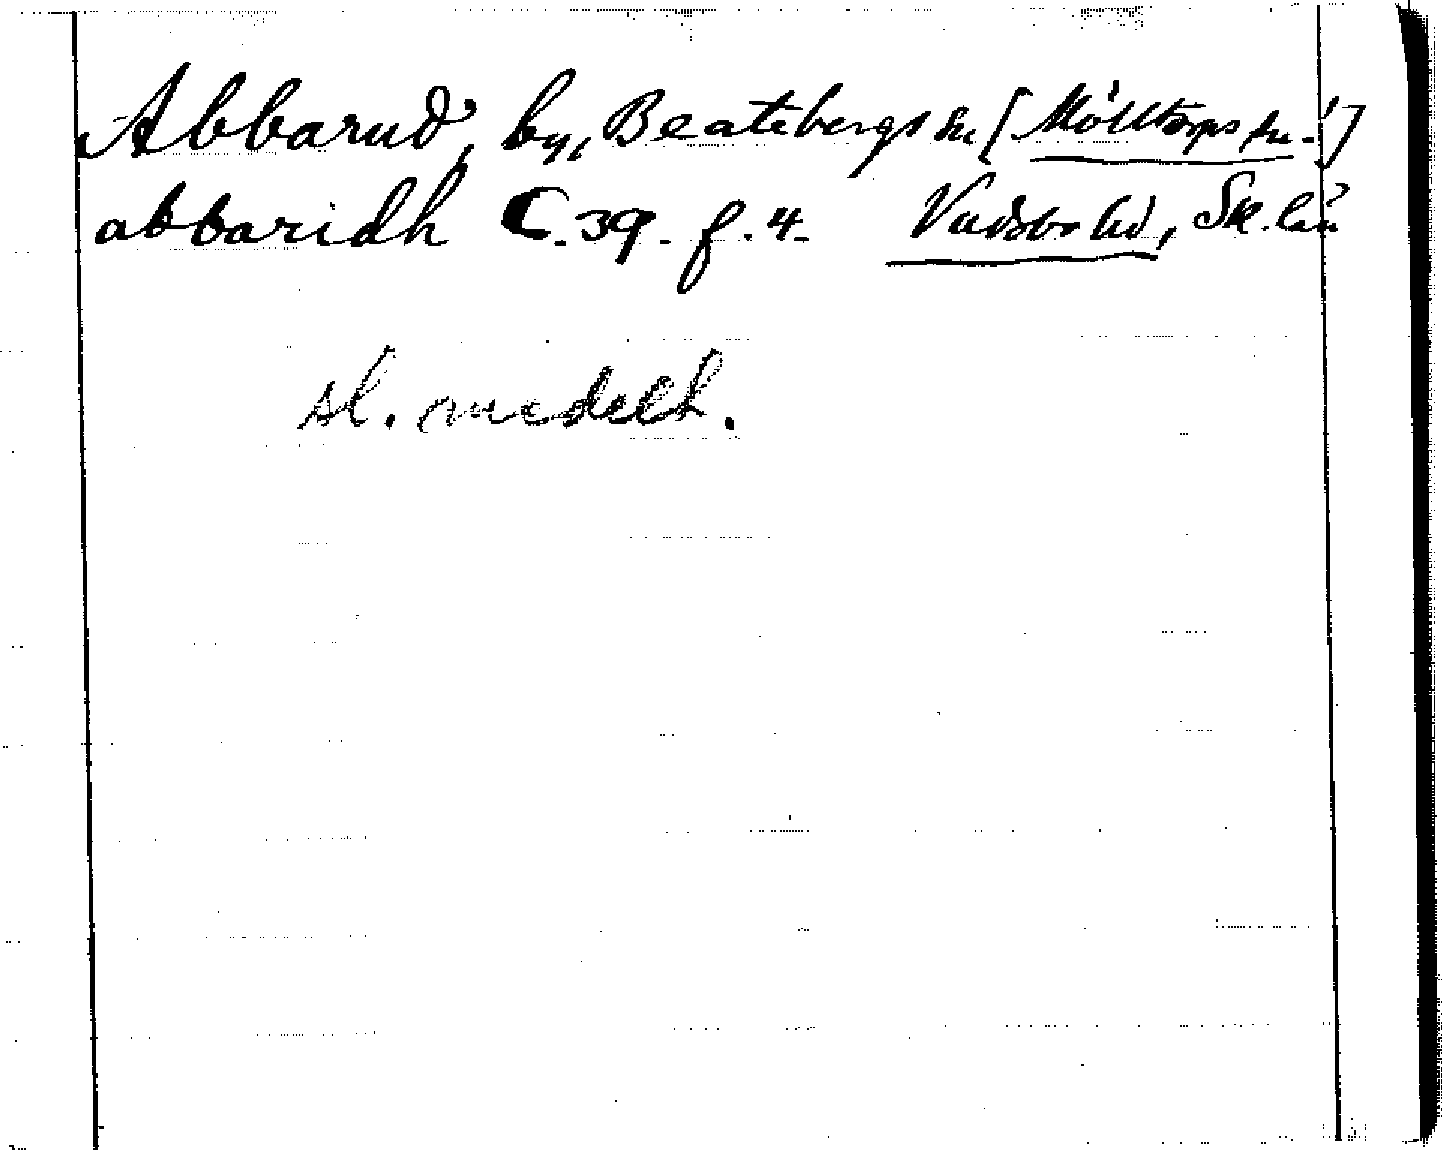 Abbarud, by, Beatebergs sn [Mölltorps sn.!]
abbaridh C. 39. f. 4. Vadsbo hd, Sk. län
sl. medelt.